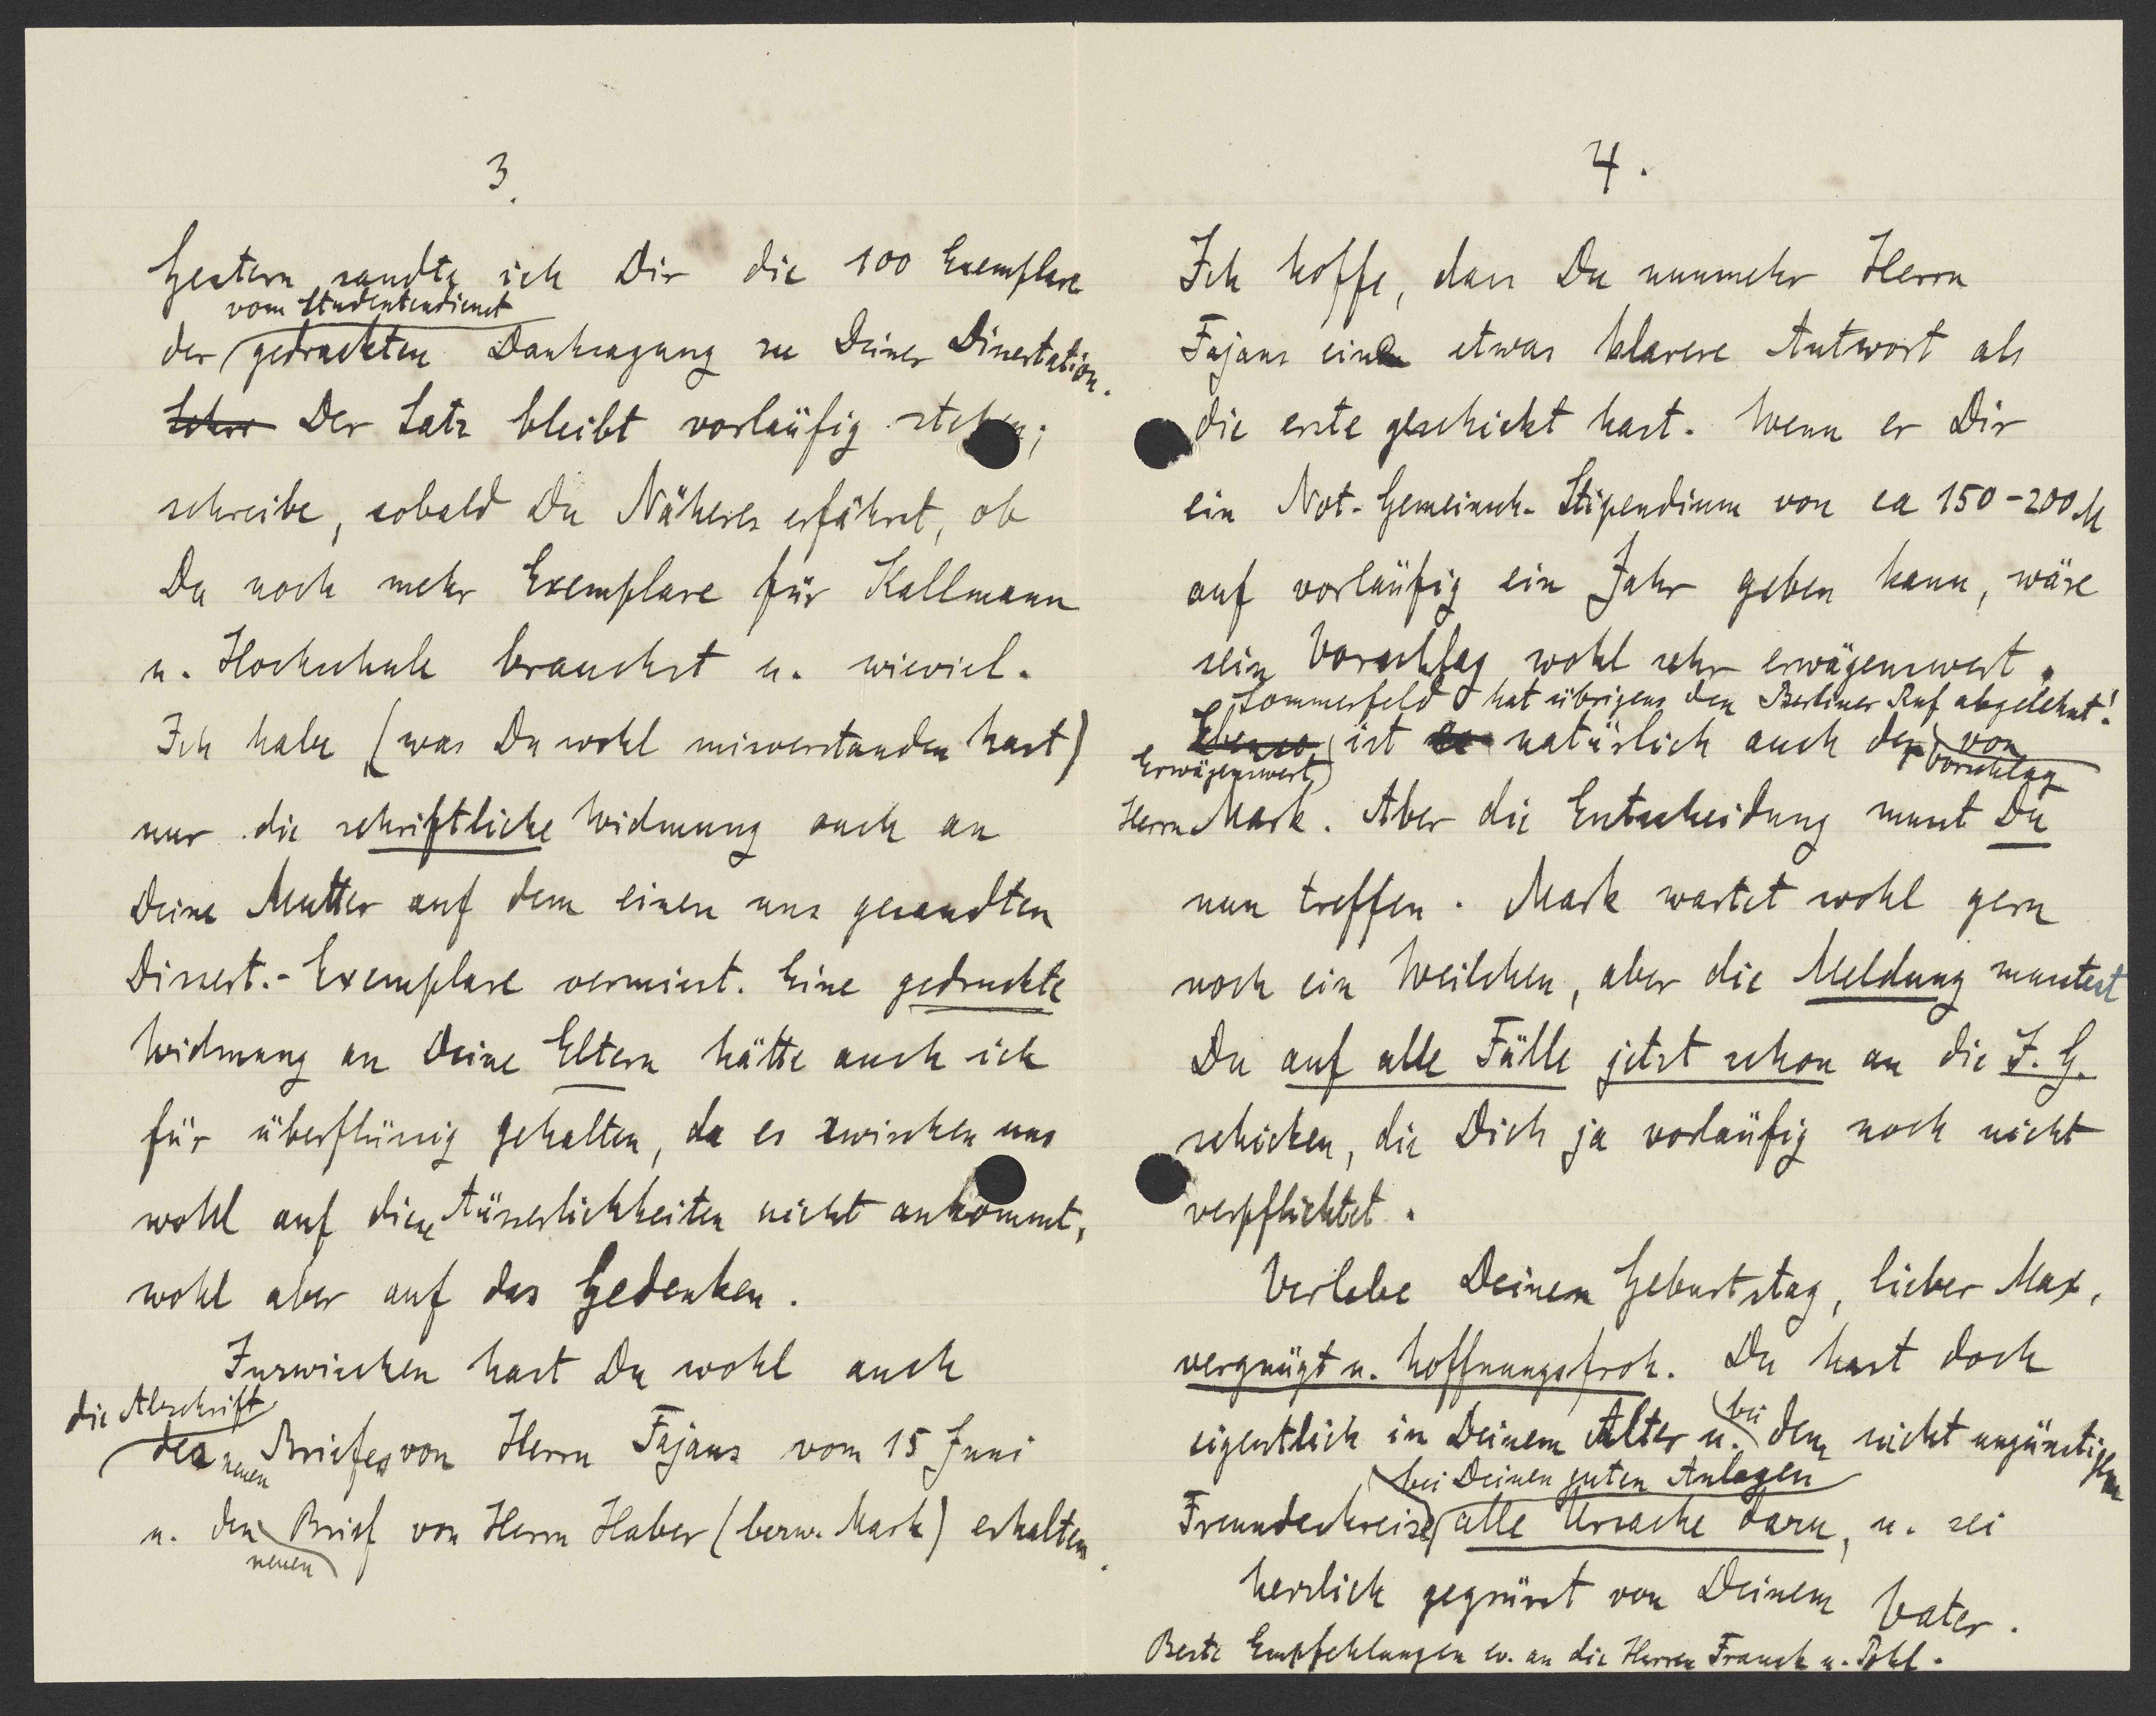 3.
Gestern sandte ich Dir die 100 Exemplare
vom Studentendienst
der gedruckten Danksagung zu Deiner Dissertation.
Der Satz bleibt vorläufig stehen;
schreibe, sobald Du Näheres erfährst, ob
Du noch mehr Exemplare für Kallmann
u. Hochschule brauchst u. wieviel.
Ich habe (was Du wohl misverstanden hast)
nur die schriftliche Widmung auch an
Deine Mutter auf dem einen uns gesandten
Dissert.-Exemplare vermisst. Eine gedruckte
Widmung an Deine Eltern hätte auch ich
für überflüssig gehalten, da es zwischen uns
wohl auf diese Äusserlichkeiten nicht ankommt,
wohl aber auf das Gedenken.
Inzwischen hast Du wohl auch
die Abschrift
des neuen Briefes von Herrn Fajans vom 15 Juni
u. den Brief von Herrn Haber (bezw. Mark) erhalten.
neuen
4.
Ich hoffe, dass Du nunmehr Herrn
Fajans eine etwas klarere Antwort als
die erste geschickt hast. Wenn er Dir
ein Not-Gemeinsch-Stipendium von ca 150-200 M
auf vorläufig ein Jahr geben kann, wäre
sein Vorschlag wohl sehr erwägenswert.
Sommerfeld hat übrigens den Berliner Ruf abgelehnt!
Ebenso ist es natürlich auch der von
Erwägenswert Vorschlag
Herrn Mark. Aber die Entscheidung musst Du
nun treffen. Mark wartet wohl gern
noch ein Weilchen, aber die Meldung musstest
Du auf alle Fälle jetzt schon an die I. G.
schicken, die Dich ja vorläufig noch nicht
verpflichtet.
Verlebe Deinen Geburtstag, lieber Max,
vergnügt u. hoffnungsfroh. Du hast doch
eigentlich in Deinem Alter u. bei dem nicht ungünstigen
bei Deinen guten Anlagen
Freundeskreise alle Ursache dazu, u. sei
herzlich gegrüsst von Deinem Vater.
Beste Empfehlungen ev. an die Herren Franck u. Pohl.